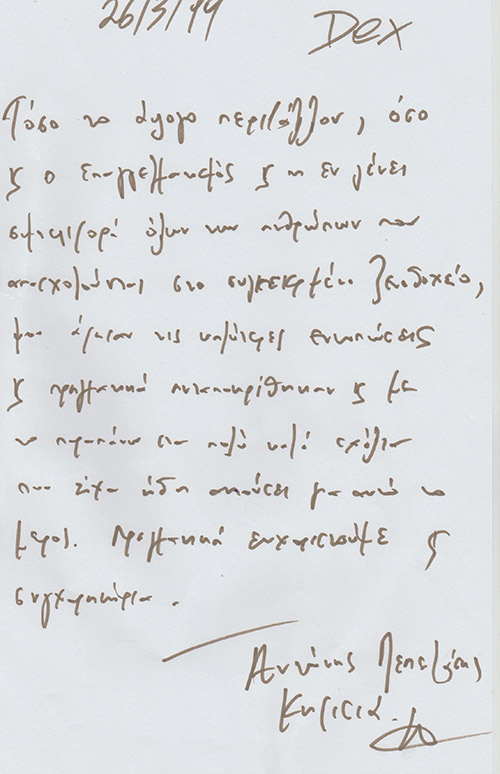 26/3/99
Dex
Τόσο το άψογο περιβάλλον, όσο
ϗ ο επαγγελματισμός ϗ η εν γένει
συμπεριφορά όλων των ανθρώπων που
απασχολούνται στο συγκεκριμένο ξενοδοχείο,
μου άφησαν τις καλύτερες εντυπώσεις
ϗ πραγματικά ανταποκρίθηκαν ϗ με
το παραπάνω στα πολύ καλά σχόλια
που είχα ήδη ακούσει για αυτό το
μέρος. Πραγματικά ευχαριστούμε ϗ
συγχαρητήρια.
Αντώνης
Κηφισιά.